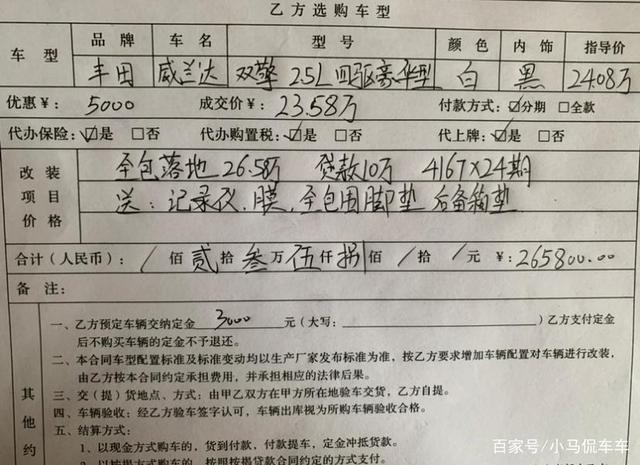 乙方选购车型
车型 品牌 车名 型号 颜色 内饰 指导价
丰田 威兰达 双擎 2.5L四驱豪华型 白 黑 24.08万
优惠¥: 5000 成交价¥: 23.58万 付款方式:☑分期 □全款
代办保险:☑是 □否 代办购置税:☑是 □否 代上牌:☑是 □否
改装 全包落地26.58万 贷款10万 4167×24期
项目 送:记录仪.膜.全包围脚垫 后备箱垫
价格
合计(人民币): / 佰 贰 拾 叁 万 伍 仟 捌 佰 / 拾 / 元 ¥: 265800.00
备注:
一、乙方预定车辆交纳定金 3000 元(大写: )乙方支付定金
后不购买车辆的定金不予退还。
二、本合同车型配置标准及标准变动均以生产厂家发布标准为准,按乙方要求增加车辆配置对车辆进行改装,
由乙方按本合同约定承担费用,并承担相应的法律后果。
其他约
三、交(提)货地点、方式:由甲乙双方在甲方所在地验车交货,乙方自提。
四、车辆验收:经乙方验车签字认可,车辆出库视为所购车辆验收合格。
五、结算方式:
1、以现金方式购车的,货到付款,付款提车,定金冲抵货款。
2、以按揭方式购车的,按照按揭贷款合同约定的方式支付。
百家号/小马侃车车